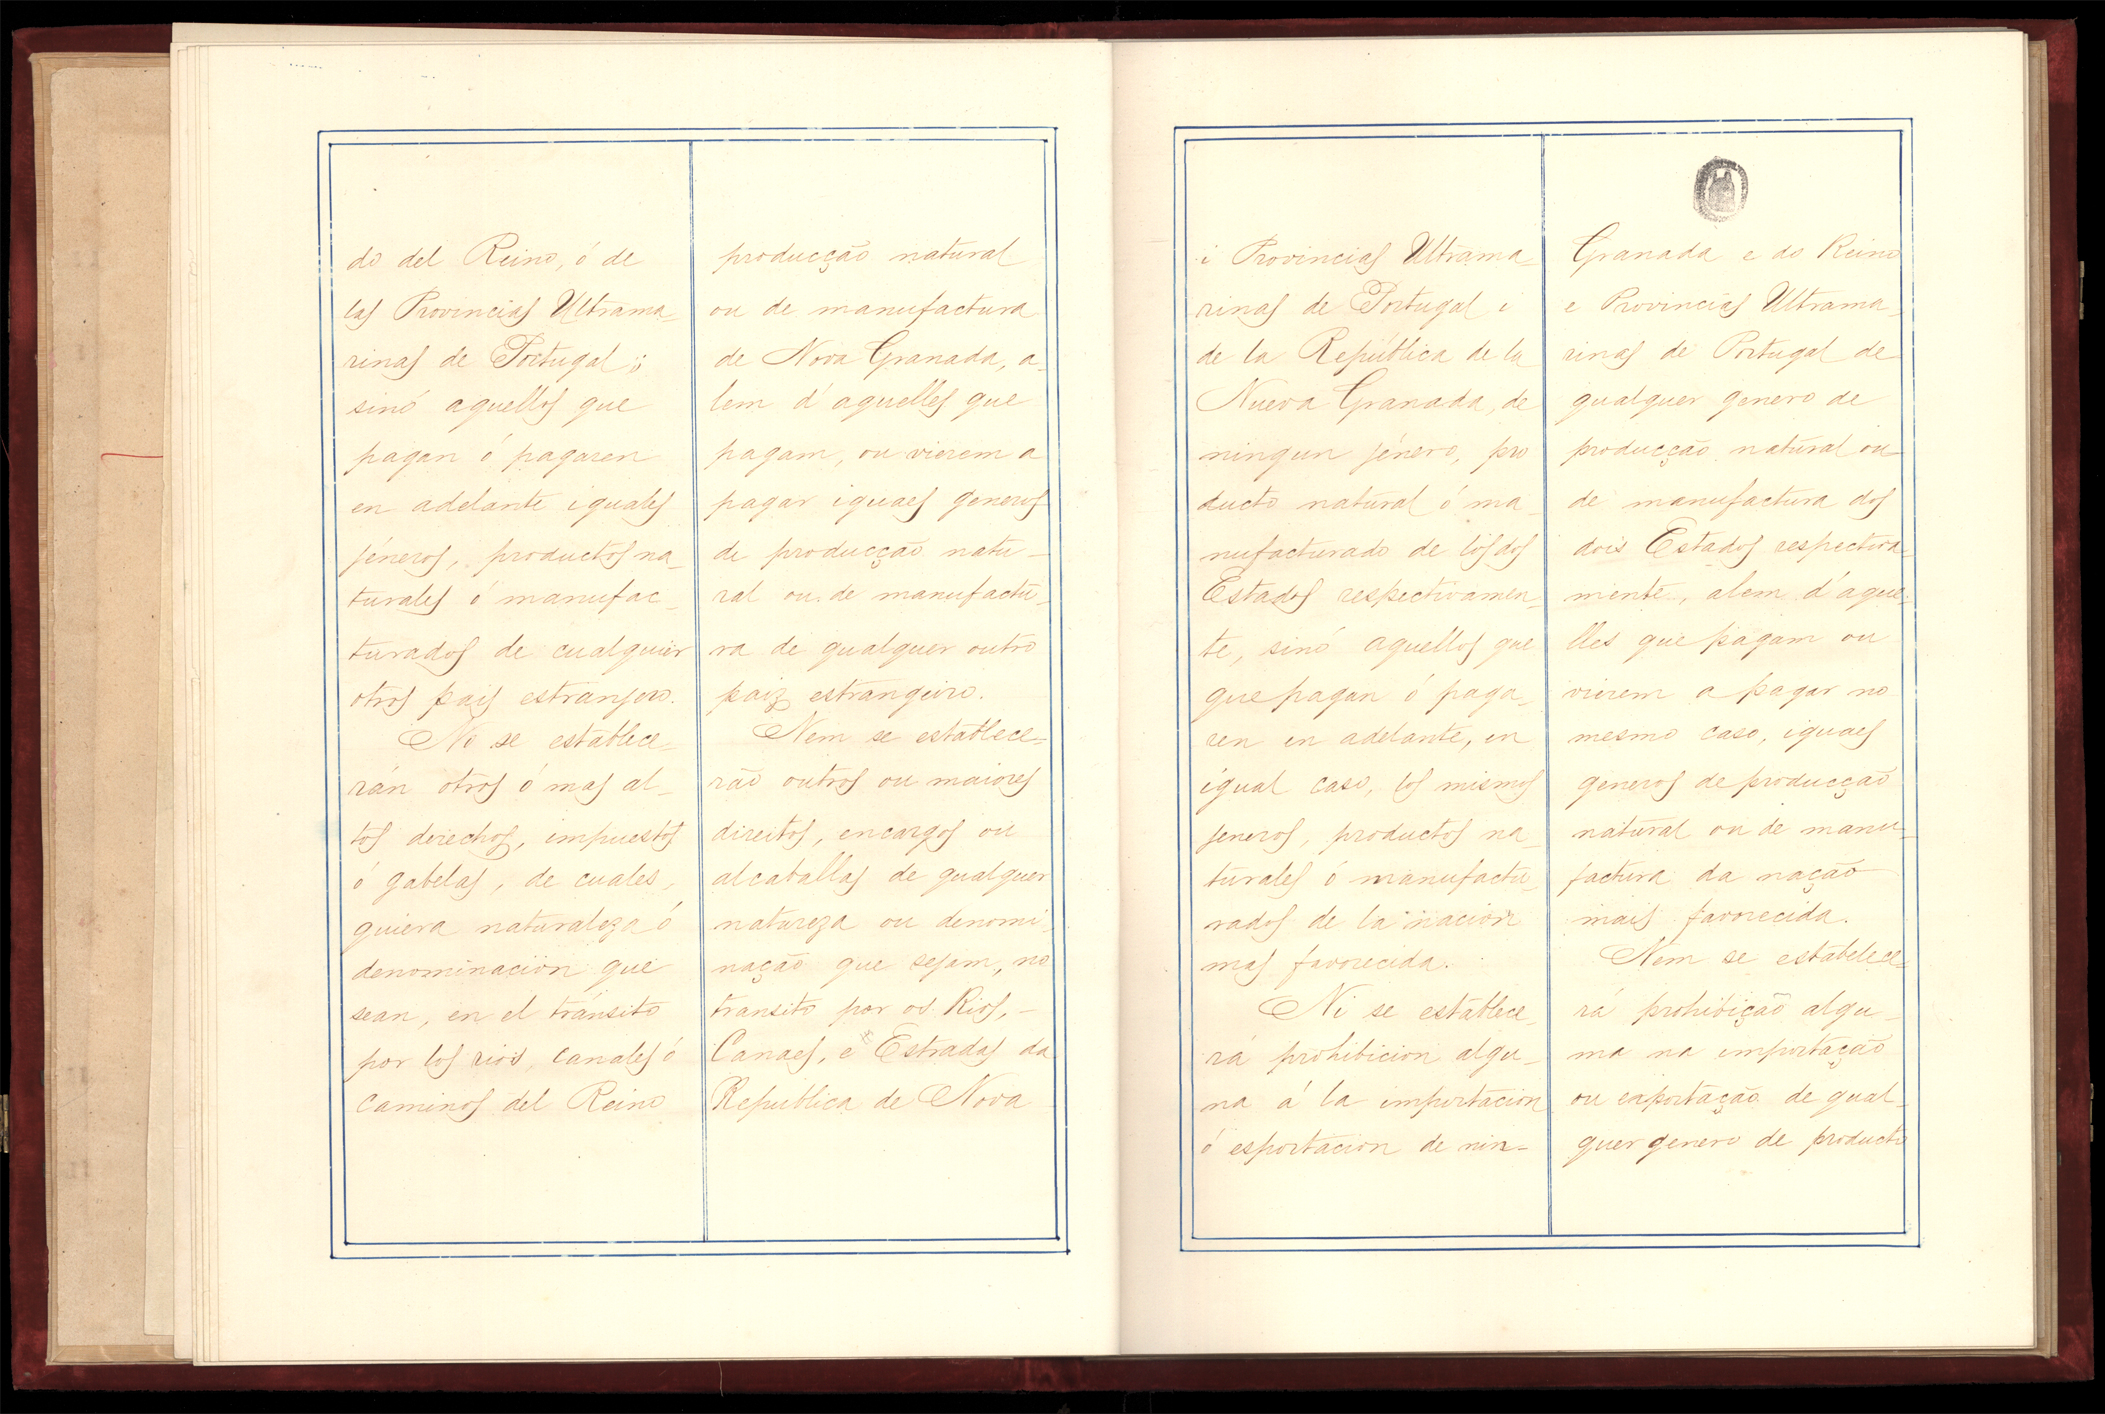 do del Reino, ó de
las Provincias Ultrama-
rinas de Portugal;
sinó aquellos que
pagan ó pagaren
en adelante iguales
jéneros, productos na-
turales ó manufac-
turados de cualquier
otros pais estranjero.
Ni se establece-
rán otros ó mas al-
tos derechos, impuestos
ó gabelas, de cuales-
quiera naturaleza ó
denominacion que
sean, en el tránsito
por los rios, canales ó
caminos del Reino
producção natural
ou de manufactura
de Nova Granada, a-
lem d'aquelles que
pagam, ou vierem a
pagar iguaes generos
de producção natu-
ral ou de manufactu-
ra de qualquer outro
paiz estrangeiro.
Nem se establece-
rão outros ou maiores
direitos, encargos ou
alcaballas de qualquer
natureza ou denomi-
nação que sejam, no
transito por os Rios,-
Canaes, e Estradas da
Republica de Nova
i Provincias Ultrama-
rinas de Portugal i
de la República de la
Nueva Granada, de
ningun jénero, pro
ducto natural ó ma-
nufacturado de los dos
Estados respectivamen-
te, sinó aquellos que
que pagan ó paga-
ren en adelante, en
igual caso, los mismos
jeneros, productos na-
turales ó manufactu-
rados de la nacion
mas favorecida.
Ni se establece-
rá prohibicion algu-
na á la importacion
ó esportacion de nin-
Granada e do Reino
e Provincias Ultrama-
rinas de Portugal de
qualquer genero de
producção natural ou
de manufactura dos
dois Estados respectiva-
mente, alem d'aque-
lles que pagam ou
vierem a pagar no
mesmo caso, iguaes
generos de producção
natural ou de manu-
factura da nação
mais favorecida.
Nem se estabelece-
rá prohibição algu-
ma na importação
ou exportação de qual-
quer genero de producto